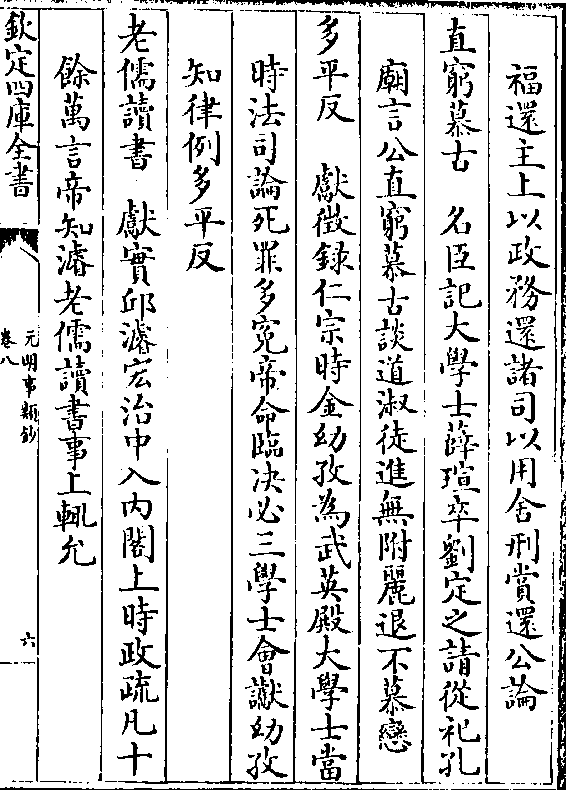 福還主上以政務還諸司以用舍刑賞還公論
直窮慕古 名臣記大學士薛瑄卒劉定之請從祀孔
廟言公直窮慕古談道淑徒進無附麗退不慕戀
多平反 獻徵録仁宗時金幼孜為武英殿大學士當
時法司論死罪多寃帝命臨決必三學士會讞幼孜
知律例多平反
老儒讀書 獻實邱濬宏治中入内閣上時政疏凡十
餘萬言帝知濬老儒讀書事上輒允
欽定四庫全書
元明事類鈔
卷八
六